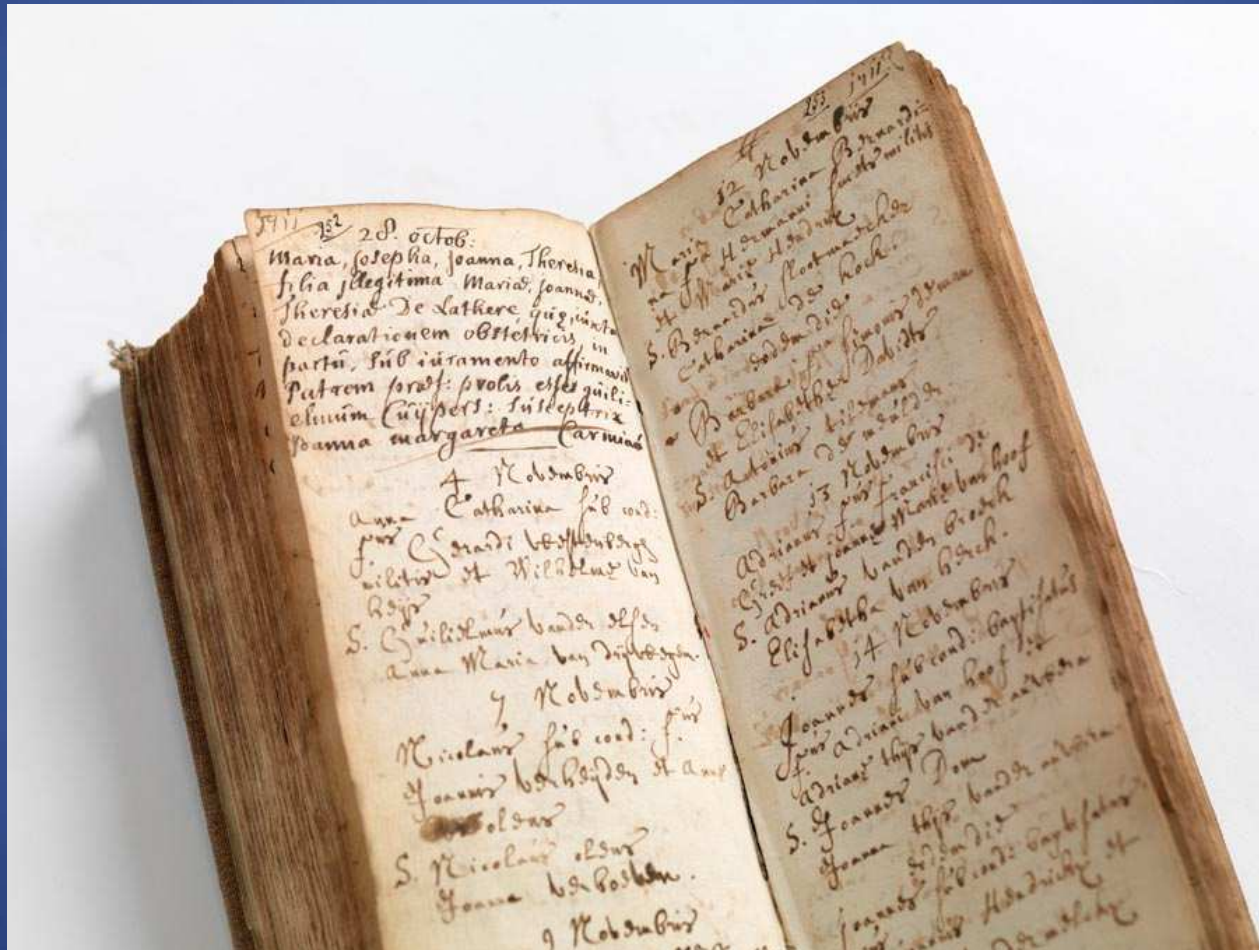 1711 252
28. octob:
Maria, Josepha, Joanna, Theresia
filia illegitima Mariæ, Joannæ,
Theresiæ De Lathere, quæ, iuxta
declarationem obstetricis, in
partu, sub iuramento affirmavit
Patrem præf: prolis esse guili-
elmum Cuÿpers: susceptrix
Joanna margareta Carmiaö
4 Novembris
Anna Catharina sub cond:
Gerardi
militis et Wilhelmæ van
heijs
S. Guilielmus vander elsen
Anna Maria van
7 Novembris
Nicolaus sub cond: f.
Joannis verheijden et Annæ
olens
S. Nicolaus olens
Joanna verhoeven.
9 Novembris
253 1711
12 Novembris
Maria Catharina Bernardi-
na Hermanni militis
et Mariæ Hendrix
S. Bernardus slootmaecker
Catharina de hock
eodem die
Barbara Simonis
et Elisabethæ Davidts
S. Antonius tielemans
Barbara de meulder
13 Novembris
Adrianus Francisci de
et Joannæ Mariæ van hoof
S. Adrianus vanden broeck
Elisabetha van herck.
14 Novembris
Joannes sub cond: baptisatus
Adriani van hoof et
Adrianæ thijs vander
S. Joannes Dom
Joanna thijs vander
eodem die
Joannes sub cond: baptisatus
Hendrickx et